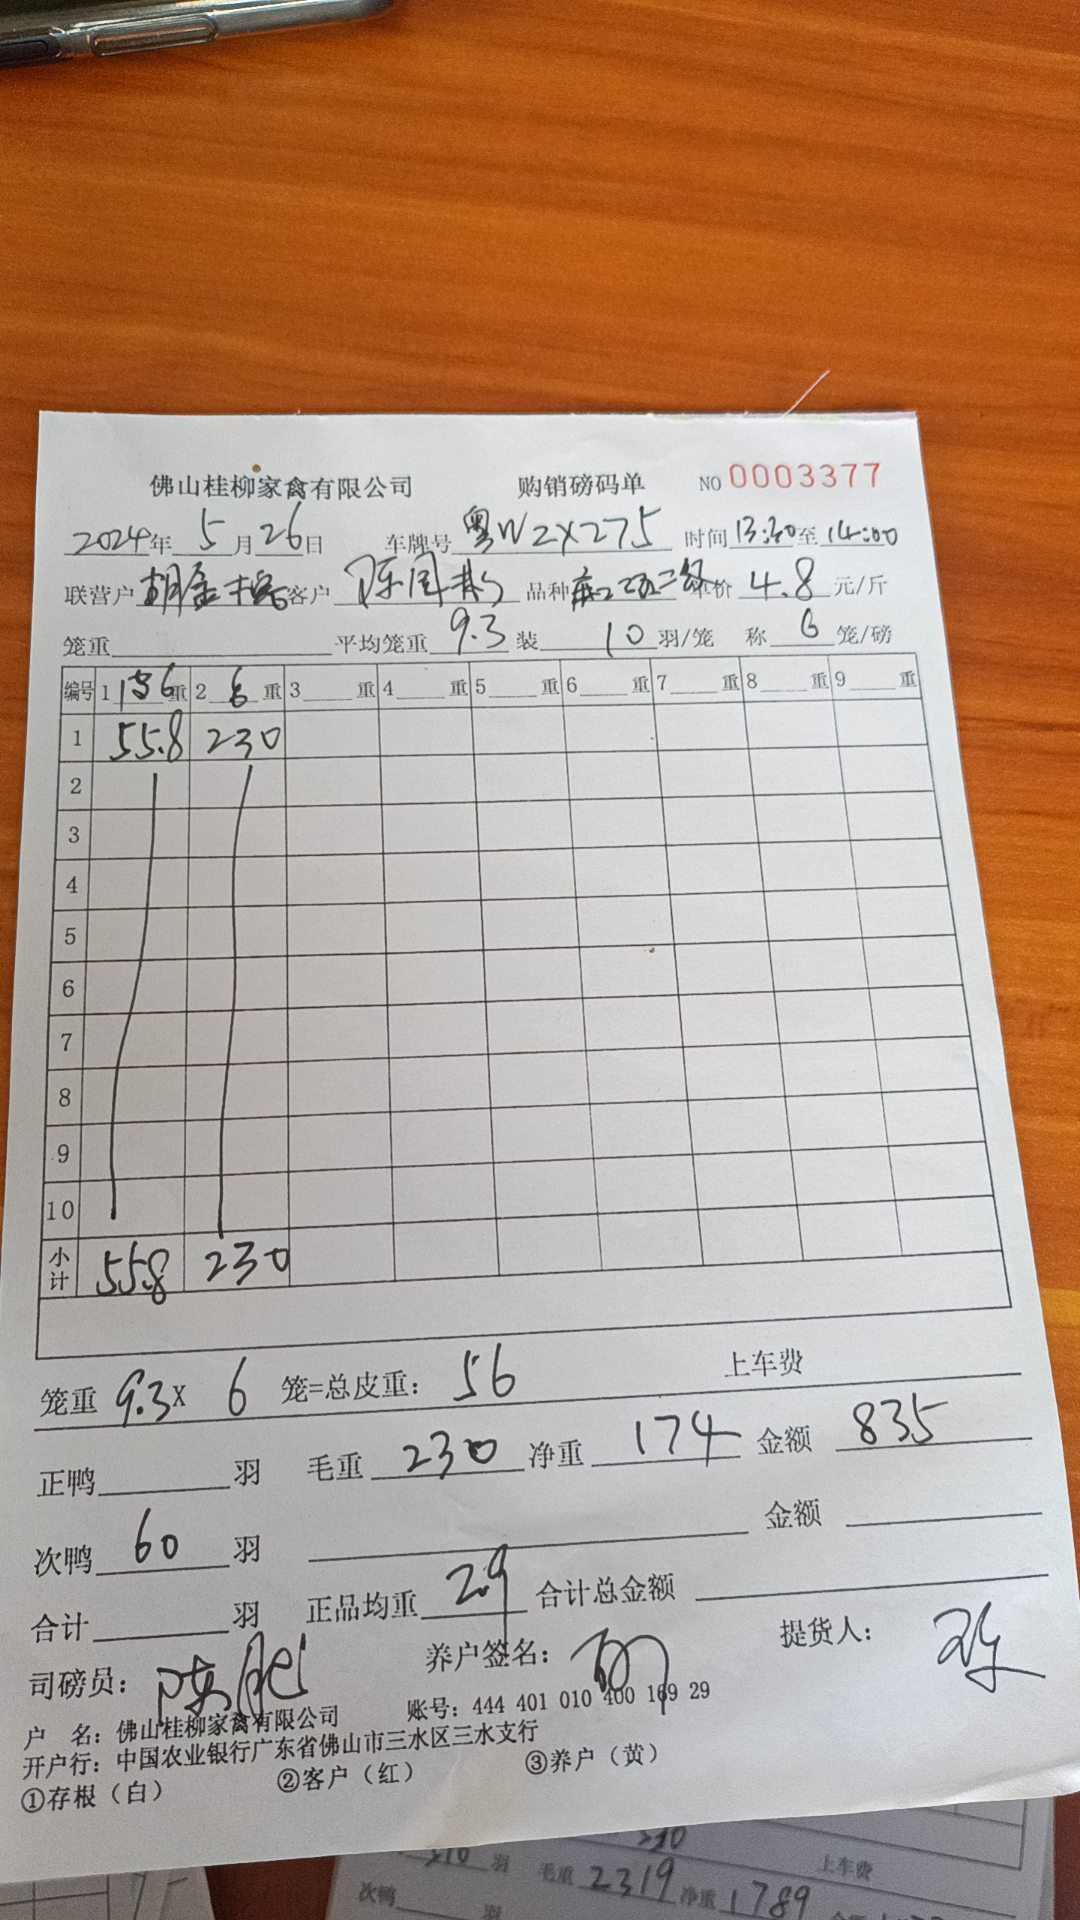 佛山桂柳家禽有限公司 购销磅码单 NO 0003377
2024年 5 月 26 日 车牌号 粤W2X275 时间 13:30 至 14:00
联营户 胡金 客户 陈国 品种 二级 单价 4.8 元/斤
笼重 平均笼重 9.3 装 10 羽/笼 称 6 笼/磅
编号 1 6 重 2 6 重 3 重 4 重 5 重 6 重 7 重 8 重 9 重
1 55.8 230
2
3
4
5
6
7
8
9
10
小计 55.8 230
笼重 9.3 x 6 笼=总皮重: 56 上车费
正鸭 羽 毛重 230 净重 174 金额 835
次鸭 60 羽 金额
合计 羽 正品均重 2.9 合计总金额
司磅员: 陈肥 养户签名: 提货人:
户 名: 佛山桂柳家禽有限公司 账号: 444 401 010 400 169 29
开户行: 中国农业银行广东省佛山市三水区三水支行
①存根（白） ②客户（红） ③养户（黄）
羽 毛重 2319 净重 1789 上车费
次鸭 羽